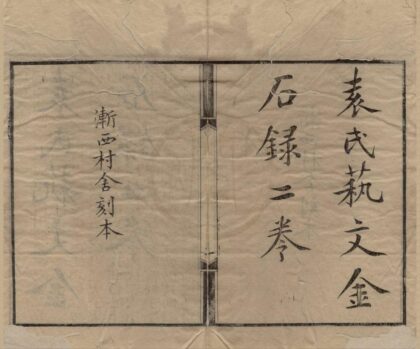 袁氏萟文金
石録二卷
漸西村舍刻本